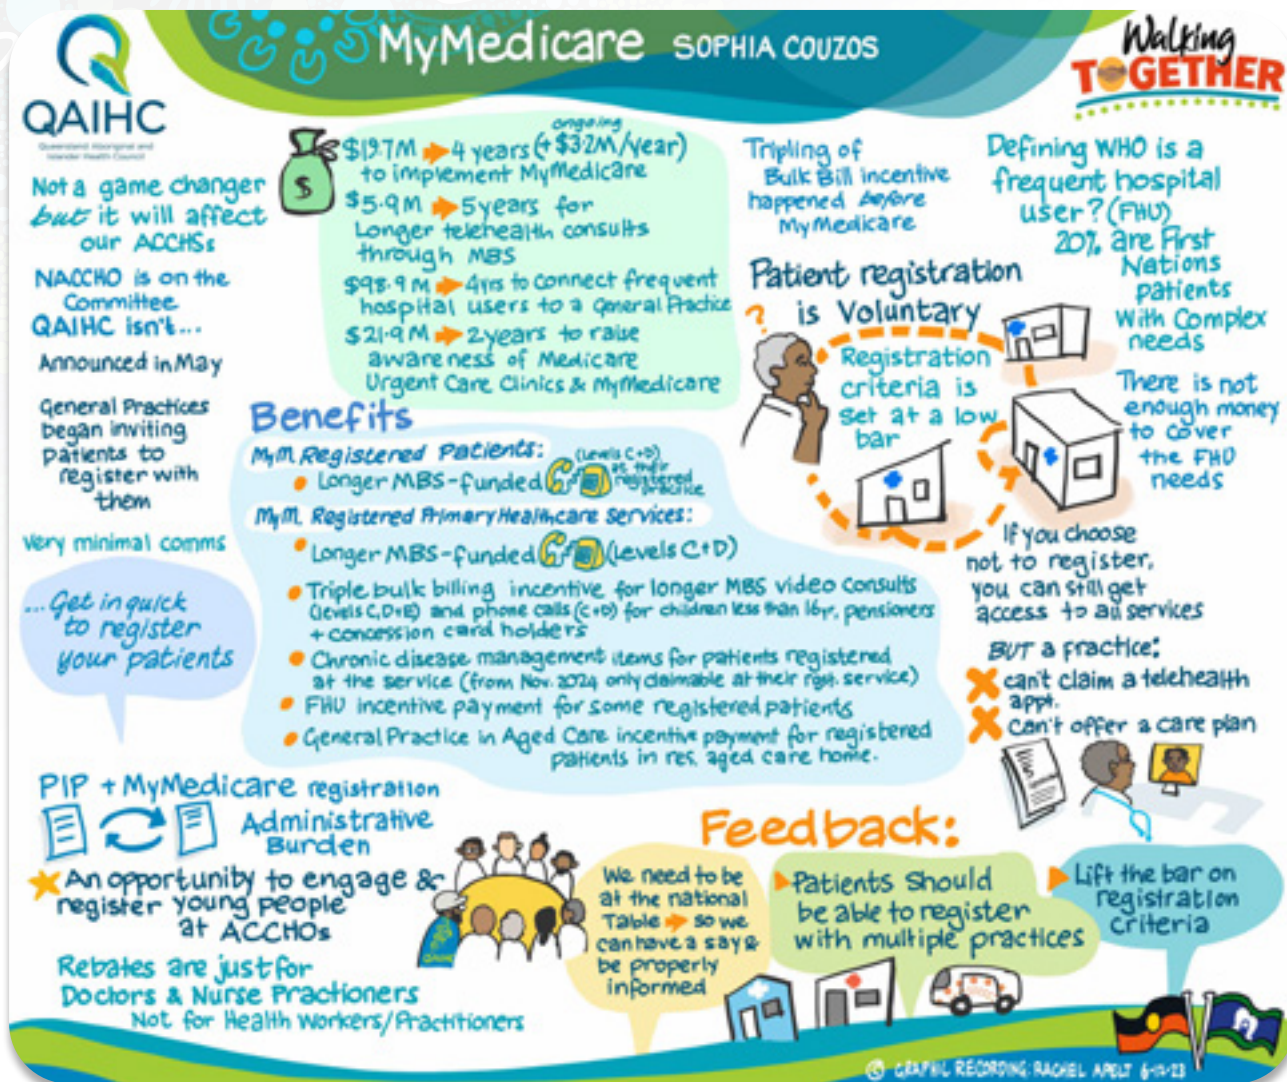 MyMedicare SOPHIA COUZOS
QAIHC
Queensland Aboriginal and
Islander Health Council
Walking
TOGETHER
Not a game changer
but it will affect
our ACCHSs
NACCHO is on the
Committee
QAIHC isn't...
Announced in May
General Practices
began inviting
patients to
register with
them
Very minimal comms
...Get in quick
to register
your patients
$
ongoing
$19.7M 4 years (+ $3.2M/year)
to implement MyMedicare
$5.9M 5 years for
Longer telehealth consults
through MBS
$98.9M 4yrs to connect frequent
hospital users to a General Practice
$21.9M 2 years to raise
awareness of Medicare
Urgent Care Clinics & MyMedicare
Tripling of
Bulk Bill incentive
happened before
MyMedicare
Defining WHO is a
frequent hospital
user? (FHU)
20% are First
Nations
patients
With Complex
needs
There is not
enough money
to cover
the FHU
needs
Patient registration
is Voluntary
?
Registration
criteria is
set at a low
bar
If you choose
not to register,
you can still get
access to all services
BUT a practice:
can't claim a telehealth
appt.
Can't offer a care plan
Benefits
MyM Registered Patients:
Longer MBS-funded (Levels C+D)
at their
registered
practice
MyM. Registered Primary Healthcare Services:
Longer MBS-funded (Levels C+D)
Triple bulk billing incentive for longer MBS video consults
(levels C,D+E) and phone calls (C+D) for children less than 16yr, pensioners
+ concession card holders
Chronic disease management items for patients registered
at the service (from Nov. 2024 only claimable at their rgst. service)
FHU incentive payment for some registered patients
General Practice in Aged Care incentive payment for registered
patients in res. aged care home.
PIP + MyMedicare registration
Administrative
Burden
An opportunity to engage &
register young people
at ACCHOs
Rebates are just for
Doctors & Nurse Practioners
Not for Health Workers/Practitioners
QAIHC
Feedback:
We need to be
at the national
Table so we
can have a say &
be properly
informed
Patients Should
be able to register
with multiple practices
Lift the bar on
registration
criteria
© GRAPHIC RECORDING: RACHEL APELT 6-12-23